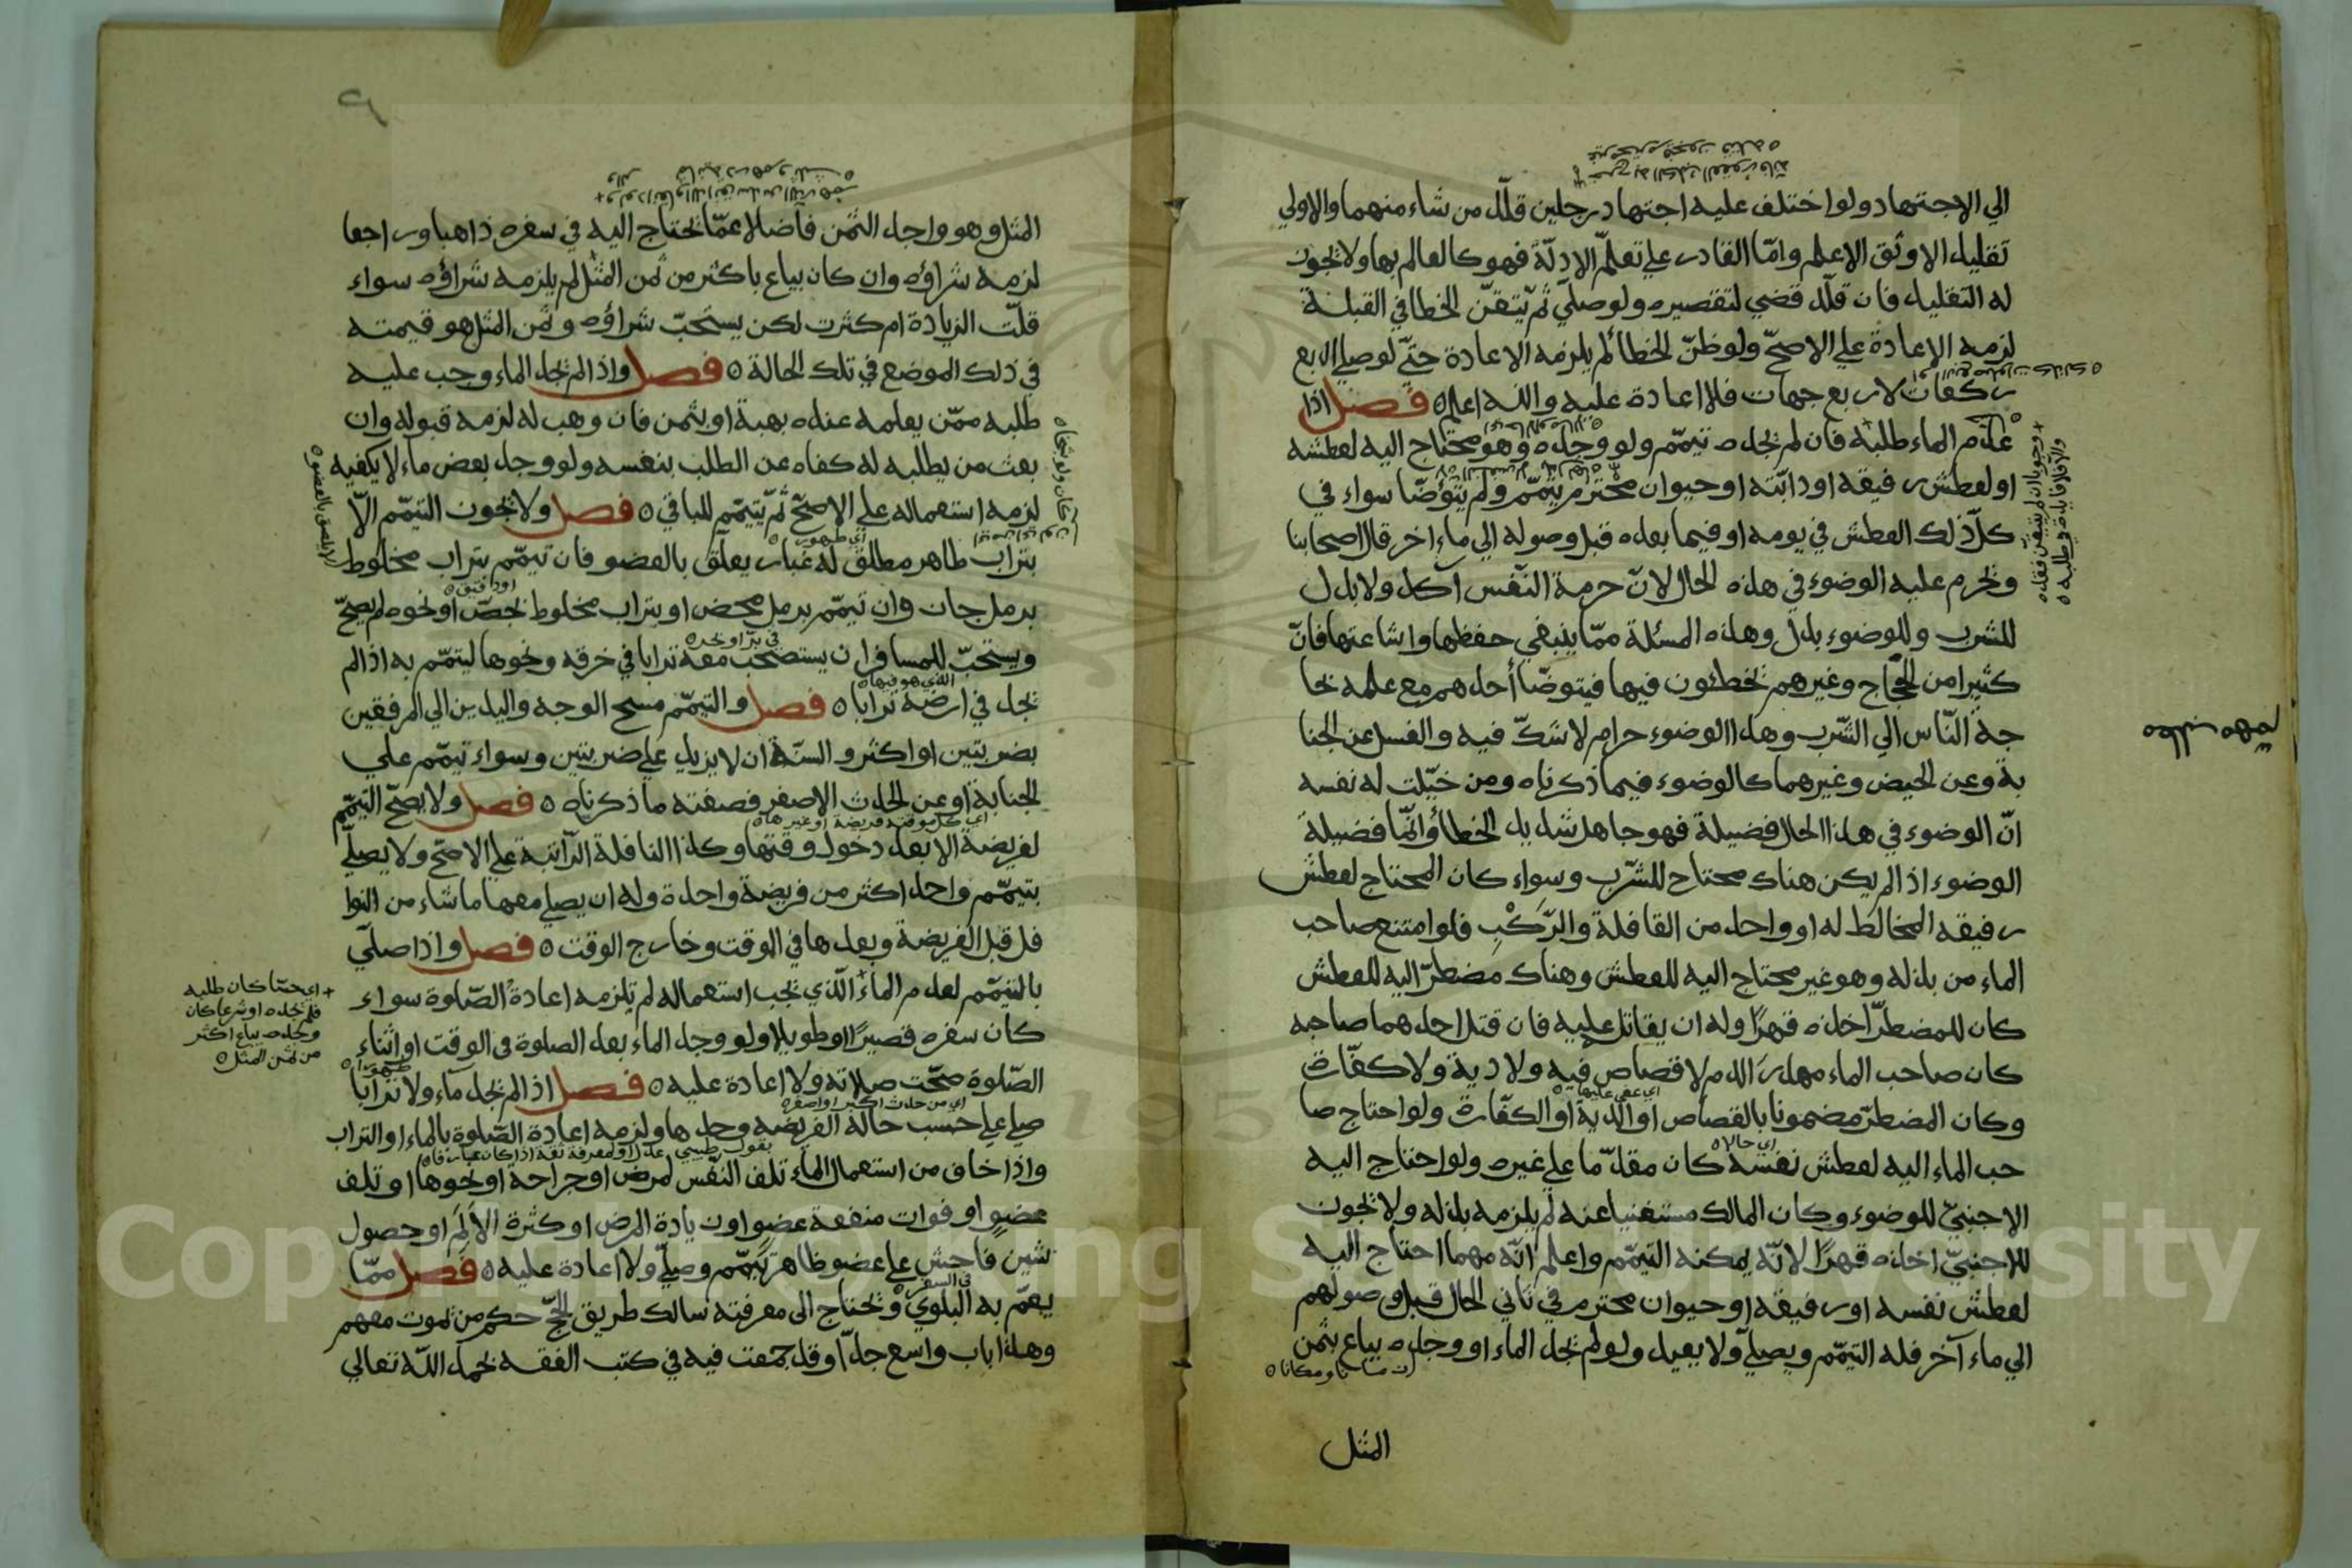 الي الاجتهاد ولو اختلف عليه اجتهاد رجلين قلّد من شاء منهما والاولي
تقليد الاوثق الاعلم وامّا القادر علي تعلّم الادلّة فهو كالعالم بها ولا يجوز
له التقليد فان قلّد قضي لتقصيره ولو صلّي ثمّ تيّقن الخطا في القبلة
لزمه الاعادة علي الاصحّ ولو ظنّ الخطأ لم يلزمه الاعادة حتّي لو صلي اربع
ركعات لاربع جهات فلا اعادة عليه والله اعلم ه فصل اذا
عدم الماء طلبه فان لم يجده تيمّم ولو وجده وهو محتاج اليه لعطشه
او لعطش رفيقه او دابّته او حيوان محترم يتيمّم ولم يتوضّا سواء في
كلّ ذلك العطش في يومه او فيما بعده قبل وصوله الي ماء اخر قال اصحابنا
ويحرم عليه الوضوء في هذه الحال لانّ حرمة النّفس آكد ولا بدل
للشرب وللوضوء بدل وهذه المسئلة ممّا ينبغي حفظها واشاعتها فانّ
كثيرا من الحجّاج وغيرهم يخطئون فيها فيتوضّا أحدهم مع علمه بحا
جة النّاس الي الشّرب وهذا الوضوء حرام لا شكّ فيه والغسل عن الجنا
بة وعن الحيض وغيرهما كالوضوء فيما ذكرناه ومن خيّلت له نفسه
انّ الوضوء في هذا الحال فضيلة فهو جاهل شديد الخطأ وانّما فضيلة
الوضوء اذا لم يكن هناك محتاح للشّرب وسواء كان المحتاج لعطش
رفيقه المخالط له او واحد من القافلة والرّكْبِ فلو امتنع صاحب
الماء من بذله وهو غير محتاج اليه للعطش وهناك مضطرّ اليه للعطش
كان للمضطرّ اخذه قهرًا وله ان يقاتل عليه فان قتل احدهما صاحبه
كان صاحب الماء مهدرَ الدم لا قصاص فيه ولا دية ولا كفّارة
وكان المضطرّ مضمونا بالقصاص او الدية او الكفّارة ولو احتاج صا
حب الماء اليه لعطش نفسه كان مقدّما علي غيره ولو احتاج اليه
الاجنبيّ للوضوء وكان المالك مستغنيا عنه لم يلزمه بذله ولا يجوز
للاجنبيّ اخذه قهرًا لانّه يمكنه التيمّم واعلم انّه مهما احتاج اليه
لعطش نفسه او رفيقه او حيوان محترم في ثاني الحال قبل وصولهم
الي ماء آخر فله التيمّم ويصلّي ولا يعيد ولو لم يجد الماء او وجده يباع بثمن
المثل
المثل وهو واجد الثّمن فاضلا عمّا يحتاج اليه في سفره ذاهبا وراجعا
لزمه شراؤه وان كان يباع باكثر من ثمن المثل لم يلزمه شراؤه سواء
قلّت الزيادة ام كثرت لكن يستحبّ شراؤه وثمن المثل هو قيمته
في ذلك الموضع في تلك الحالة ه فصل واذا لم يجد الماء وجب عليه
طلبه ممّن يعلمه عنده بهبة او بثمن فان وهب له لزمه قبوله وان
بعث من يطلبه له كفاه عن الطلب بنفسه ولو وجد بعض ماء لا يكفيه
لزمه استعماله علي الاصحّ ثمّ يتيمّم للباقي ه فصل ولا يجوز التيمّم الّا
بتراب طاهر مطلق له غبار يعلّق بالعضو فان تيمّم بتراب مخلوط
برمل جاز وان تيمّم برمل محض او بتراب مخلوط بجصّ او نحوه لم يصحّ
ويستحبّ للمسافر ان يستصحب معه ترابا في خرقه ونحوها ليتمّم به اذا لم
يجد في ارضه ترابا ه فصل والتيمّم مسح الوجه واليدين الي المرفقين
بضربتين او اكثر والسنّة ان لا يزيد علي ضربتين وسواء تيمّم علي
الجنابة او عن الحدث الاصغر فصفته ما ذكرناه ه فصل ولا يصحّ التيمّم
لفريضة الا بعد دخول وقتها وكذا النافلة الرّاتبة علي الاصحّ ولا يصلّي
بتيمّم واحد اكثر من فريضة واحدة وله ان يصلي معها ما شاء من النوا
فل قبل الفريضة وبعدها في الوقت وخارج الوقت ه فصل واذا صلّي
بالتيمّم لعدم الماء الّذي يجب استعماله لم تلزمه اعادة الصّلوة سواء
كان سفره قصيرًا او طويلا ولو وجد الماء بعد الصلوة في الوقت او اثناء
الصّلوة صحّت صلاته ولا اعادة عليه ه فصل اذا لم يجد ماء ولا ترابا
صلي علي حسب حاله الفريضه وحدها ولزمه اعادة الصّلوة بالماء او التراب
واذا خاف من استعمال الماء تلف النّفس لمرض او جراحة او نحوها او تلف
عضوٍ او فوات منفعة عضو او زيادة المرض او كثرة الالَم او حصول
شين فاحش علي عضو ظاهر تيمّم وصلّي ولا اعادة عليه ه فصل ممّا
يعمّ به البلوي ويحتاج الى معرفته سالك طريق الحجّ حكم من يموت معهم
وهذا باب واسع جدّا وقد جمعت فيه في كتب الفقه بحمد اللّه تعالي
+ اي حسّا كان طلبه
فلم يجده او شرعا كان
وجده يباع اكثر
من ثمن المثل ه
اي طهور
في السفر
اي من حدث اكبر او اصغر
Copyright © King Saud University